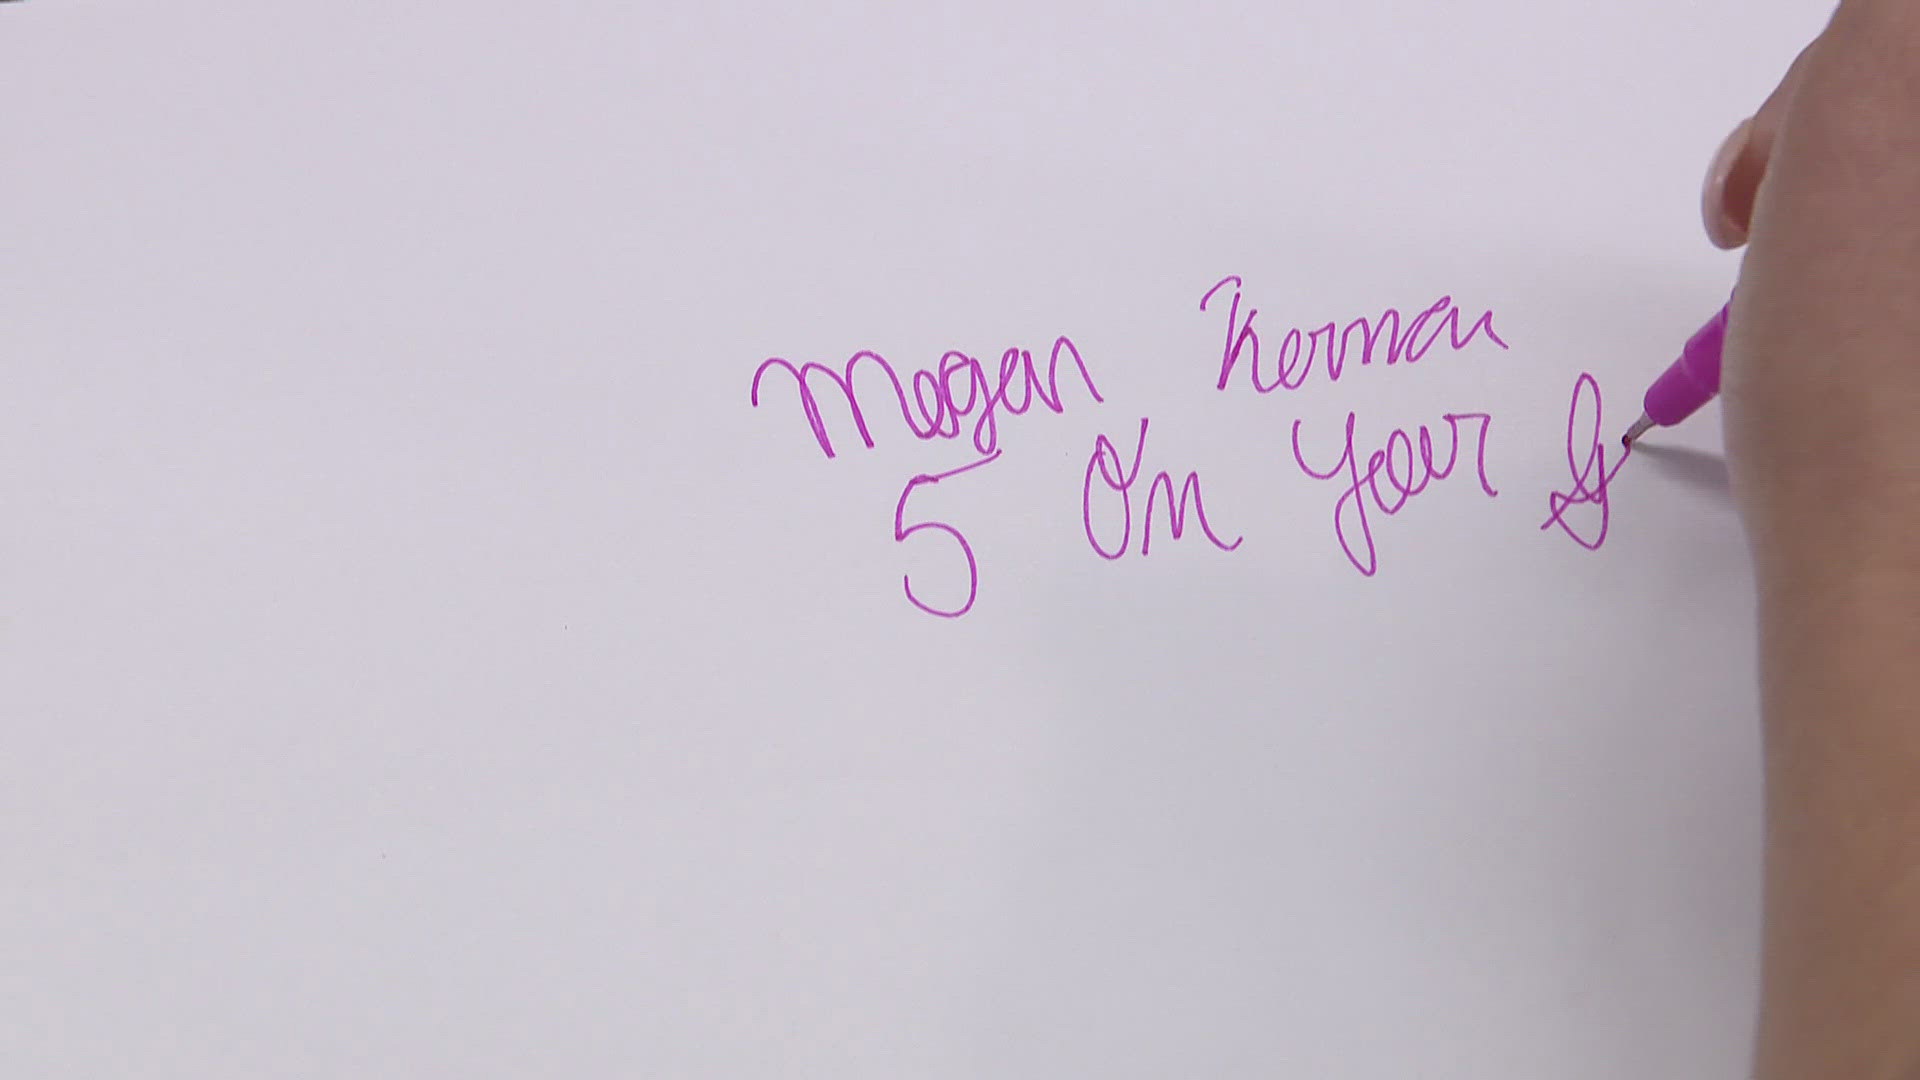 Megan Kernan
5 On Your S